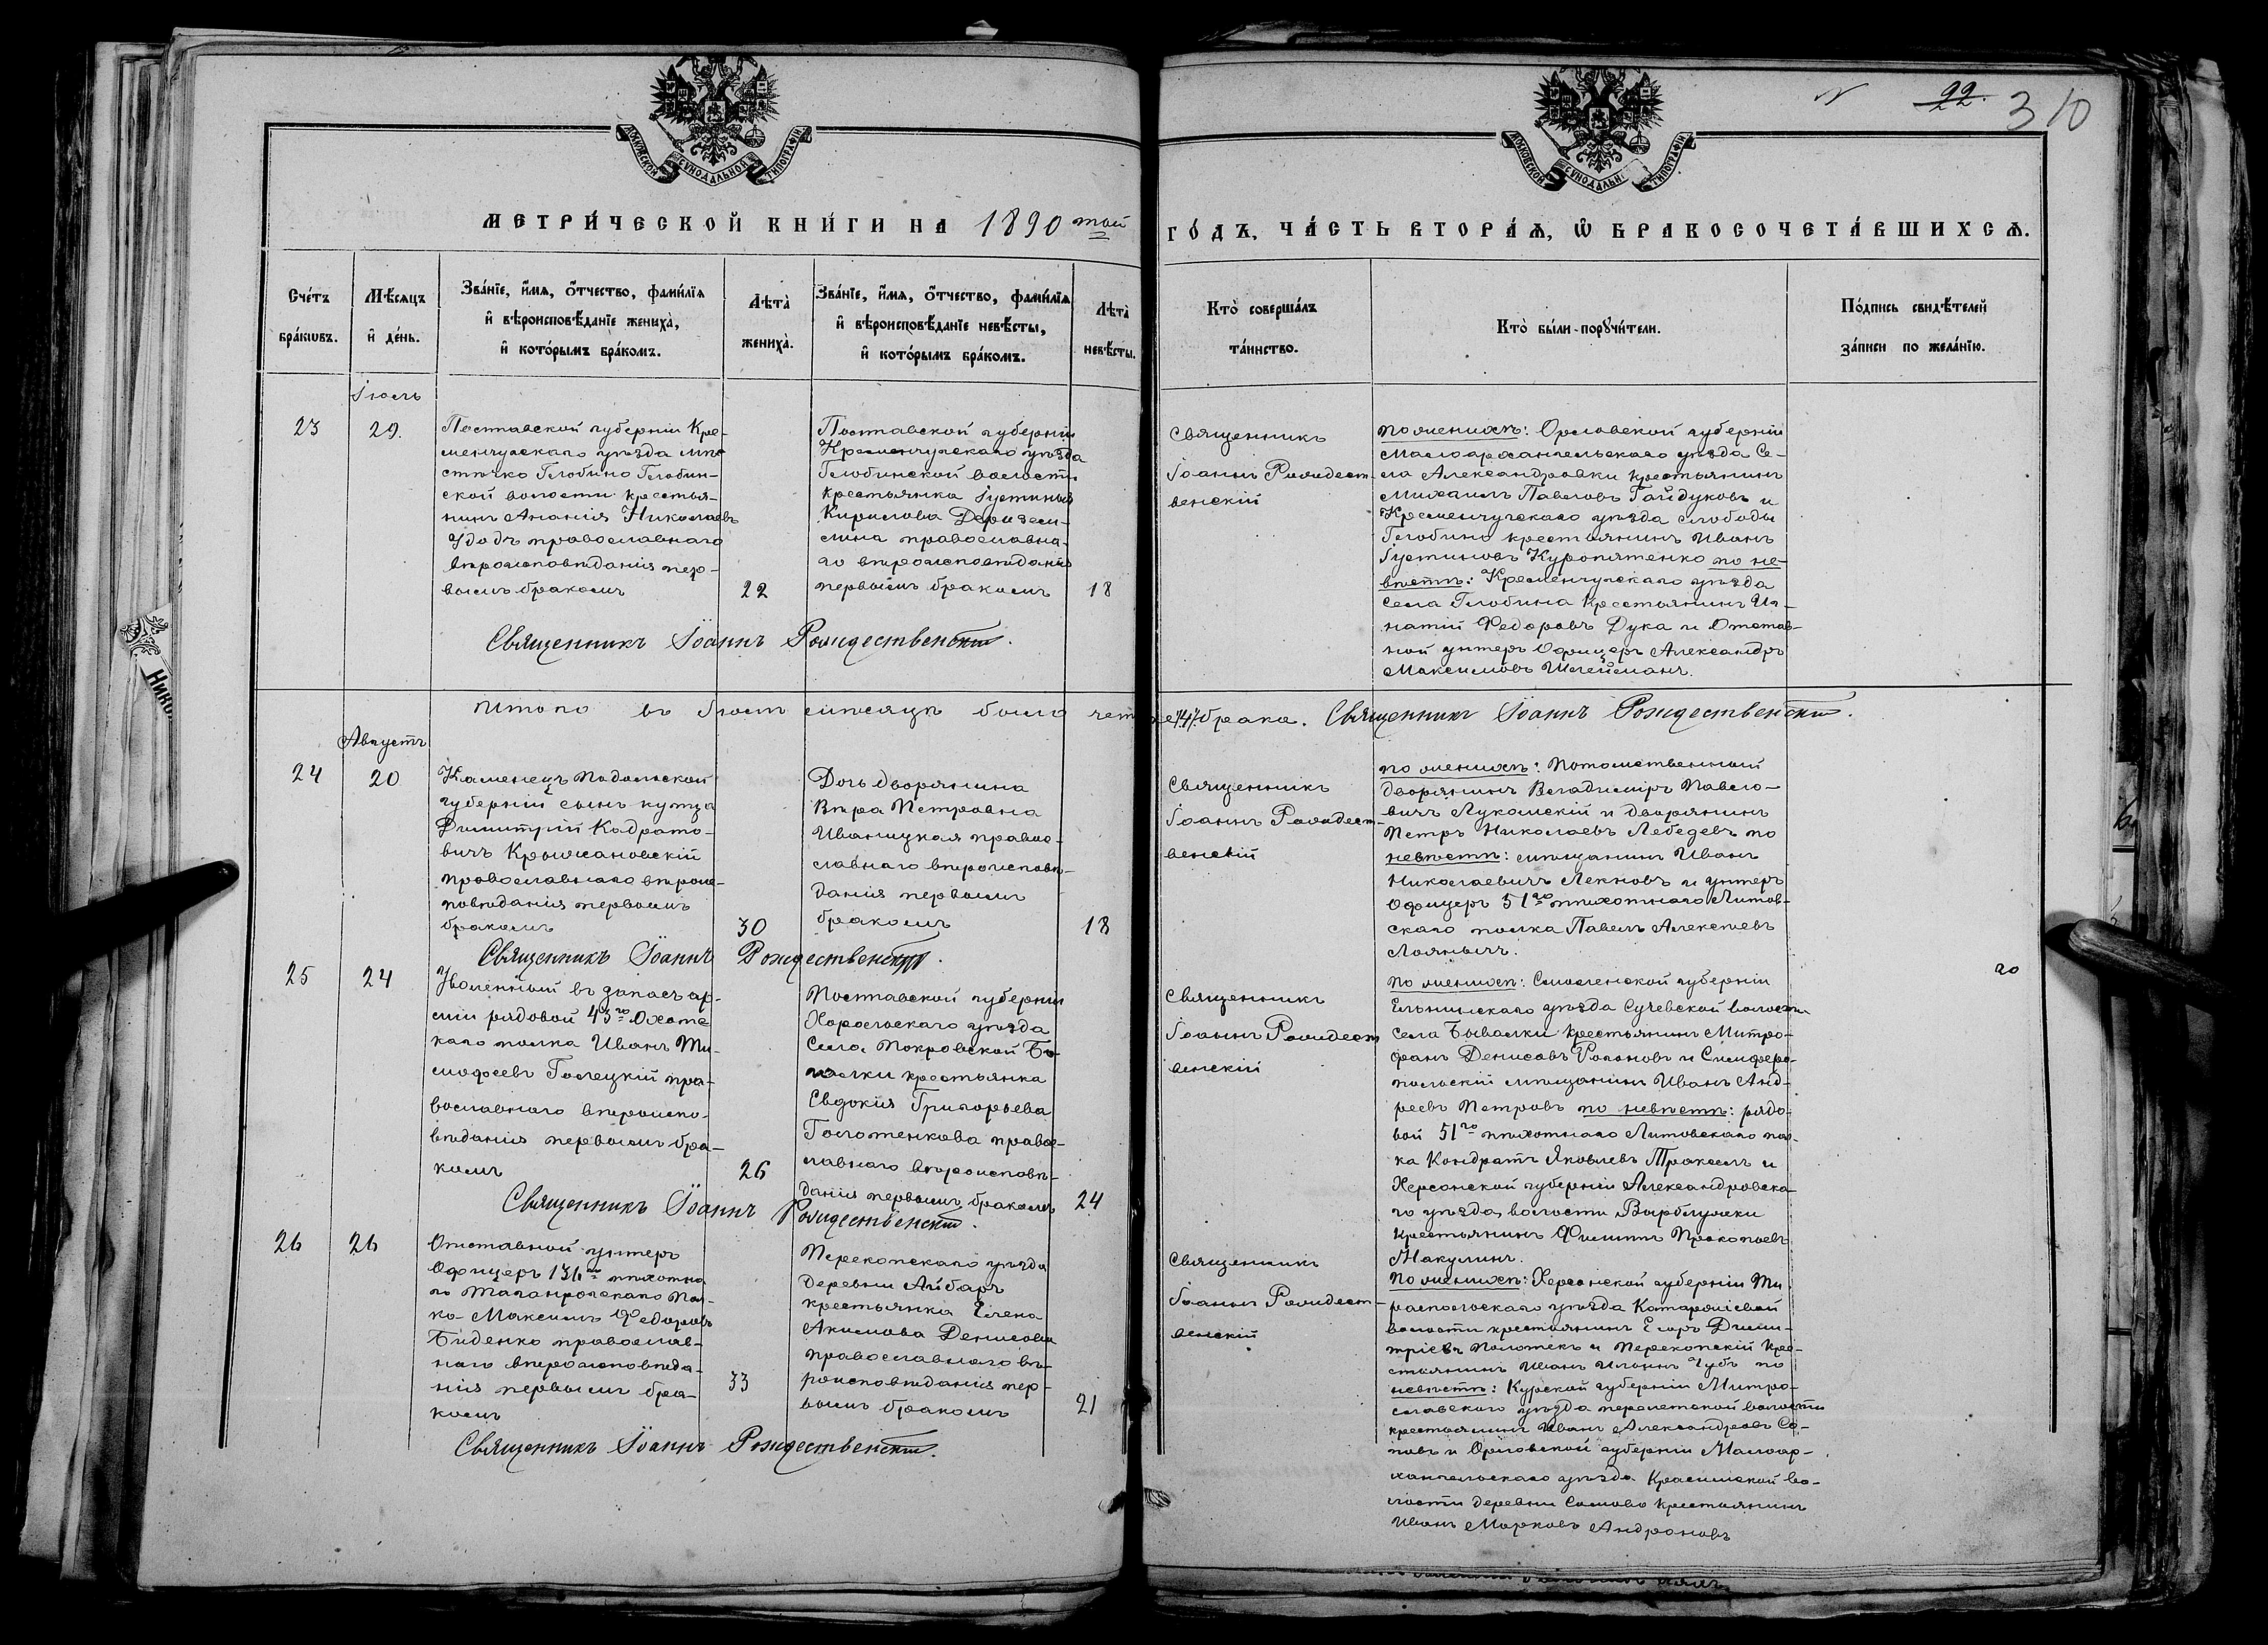 22.
310
МОСКОВСКОЙ СѴНОДАЛЬНОЙ ТИПОГРАФІИ
МОСКОВСКОЙ СѴНОДАЛЬН ТИПОГРАФІИ
МЕТРИ́ЧЕСКОЙ КНИ́ГИ НА 1890 той
ГО́ДЪ, ЧА́СТЬ ВТОРА́Ѧ, Ѡ БРАКОСОЧЕТА́ВШИХСѦ.
Сче́тъ бра́кωвъ.
Мѣ́сяцъ и҆ де́нь.
Зва́нїе, и҆́мѧ, ѻ҆́тчество, фами́лїѧ
и҆ вѣроисповѣ́данїе жениха̀,
и҆ кото́рымъ бра́комъ.
Лѣта̀ жениха̀.
Зва́нїе, и҆́мѧ, ѻ҆́тчество, фами́лїѧ
и҆ вѣроисповѣ́данїе невѣ́сты,
и҆ кото́рымъ бра́комъ.
Лѣта̀ невѣ́сты.
Кто̀ соверша́лъ
та́инство.
Кто̀ бы́ли порꙋчи́тели.
По́дпись свидѣ́телей
за́писи по жела́нїю.
Іюль
23
29.
Полтавской губерніи Кре-
менчугскаго уѣзда мѣ-
стечко Глобино Глобин-
ской волости крестья-
нинъ Ананія Николаевъ
Удодъ православнаго
вѣроисповѣданія пер-
вымъ бракомъ
22
Полтавской губерніи
Кременчугскаго уѣзда
Глобинской волости
крестьянка Іустинья
Кирилова Деризем-
лина православна-
го вѣроисповѣданія
первымъ бракомъ
18
Священникъ
Іоаннъ Рождест-
венскій
по женихѣ: Орловской губерніи
Малоархангельскаго уѣзда Се-
ла Александровки крестьянинъ
Михаилъ Павловъ Гайдуковъ и
Кременчугскаго уѣзда слободы
Глобино крестьянинъ Иванъ
Іустиновъ Куропятенко по не-
вѣстѣ: Кременчугскаго уѣзда
села Глобина крестьянинъ Иг-
натій Федоровъ Дука и Отстав-
ной унтеръ Офицеръ Александръ
Максимовъ
Священникъ Іоаннъ Рождественскій.
Итого въ Іюлѣ мѣсяцѣ было четыре /4/ брака. Священникъ Іоаннъ Рождественскій.
Августъ
24
20
Каменецъ Подольской
губерніи сынъ купца
Димитрій Кадрато-
вичъ Крыжановскій
православнаго вѣроис-
повѣданія первымъ
бракомъ
30
Дочь дворянина
Вѣра Петровна
Иваницкая право-
славнаго вѣроисповѣ-
данія первымъ
бракомъ
18
Священникъ
Іоаннъ Рождест-
венскій
по женихѣ: Потомственный
дворянинъ Владиміръ Павло-
вичъ Лукомскій и дворянинъ
Петръ Николаевъ Лебедевъ по
невѣстѣ: мѣщанинъ Иванъ
Николаевичъ и унтеръ
Офицеръ 51го пѣхотнаго Литов-
скаго полка Павелъ Алексѣевъ
Священникъ Іоаннъ Рождественскій.
25
24
Уволенный въ запасъ ар-
міи рядовой 43го Охотс
каго полка Иванъ Ти-
мофеевъ Голецкій пра-
вославнаго вѣроиспо-
вѣданія первымъ бра-
комъ
26
Полтавской губерніи
Хорольскаго уѣзда
Села Покровской Ба-
галки крестьянка
Евдокія Григорьева
Голотенкова право-
славнаго вѣроисповѣ-
данія первымъ бракомъ
24
Священникъ
Іоаннъ Рождест
венскій
по женихѣ: Смоленской губерніи
Ельнинскаго уѣзда волости
села крестьянинъ Митро-
фанъ Денисовъ и Симферо-
польскій мѣщанинъ Иванъ Анд-
реевъ Петровъ по невѣстѣ: рядо-
вой 51го пѣхотнаго Литовскаго пол-
ка Кондратъ Яковлевъ и
Херсонской губерніи Александровска-
го уѣзда волости
крестьянинъ Филиппъ Прокопьевъ
Макулинъ.
20
Священникъ Іоаннъ Рождественскій.
26
26
Отставной унтеръ
Офицеръ 136го пѣхотна
го Таганрогскаго Пол-
ка Максимъ Федоровъ
Биденко православ-
наго вѣроисповѣда-
нія первымъ бра-
комъ
33
Перекопскаго уѣзда
деревни Айбаръ
крестьянка Елена
Акимова Денисова
православнаго вѣ-
роисповѣданія пер-
вымъ бракомъ
21
Священникъ
Іоаннъ Рождест-
венскій
По женихѣ: Херсонской губерніи Ти
распольскаго уѣзда
волости крестьянинъ Егоръ Дими-
тріевъ и Перекопскій кре-
стьянинъ Иванъ Ильинъ Чубъ по
невѣстѣ: Курской губерніи
уѣзда волости
крестьянинъ Иванъ Александровъ Со-
повъ и Орловской губерніи Малоар-
хангельскаго уѣзда во-
лости деревни Сомово крестьянинъ
Иванъ Марковъ Андроновъ
Священникъ Іоаннъ Рождественскій.